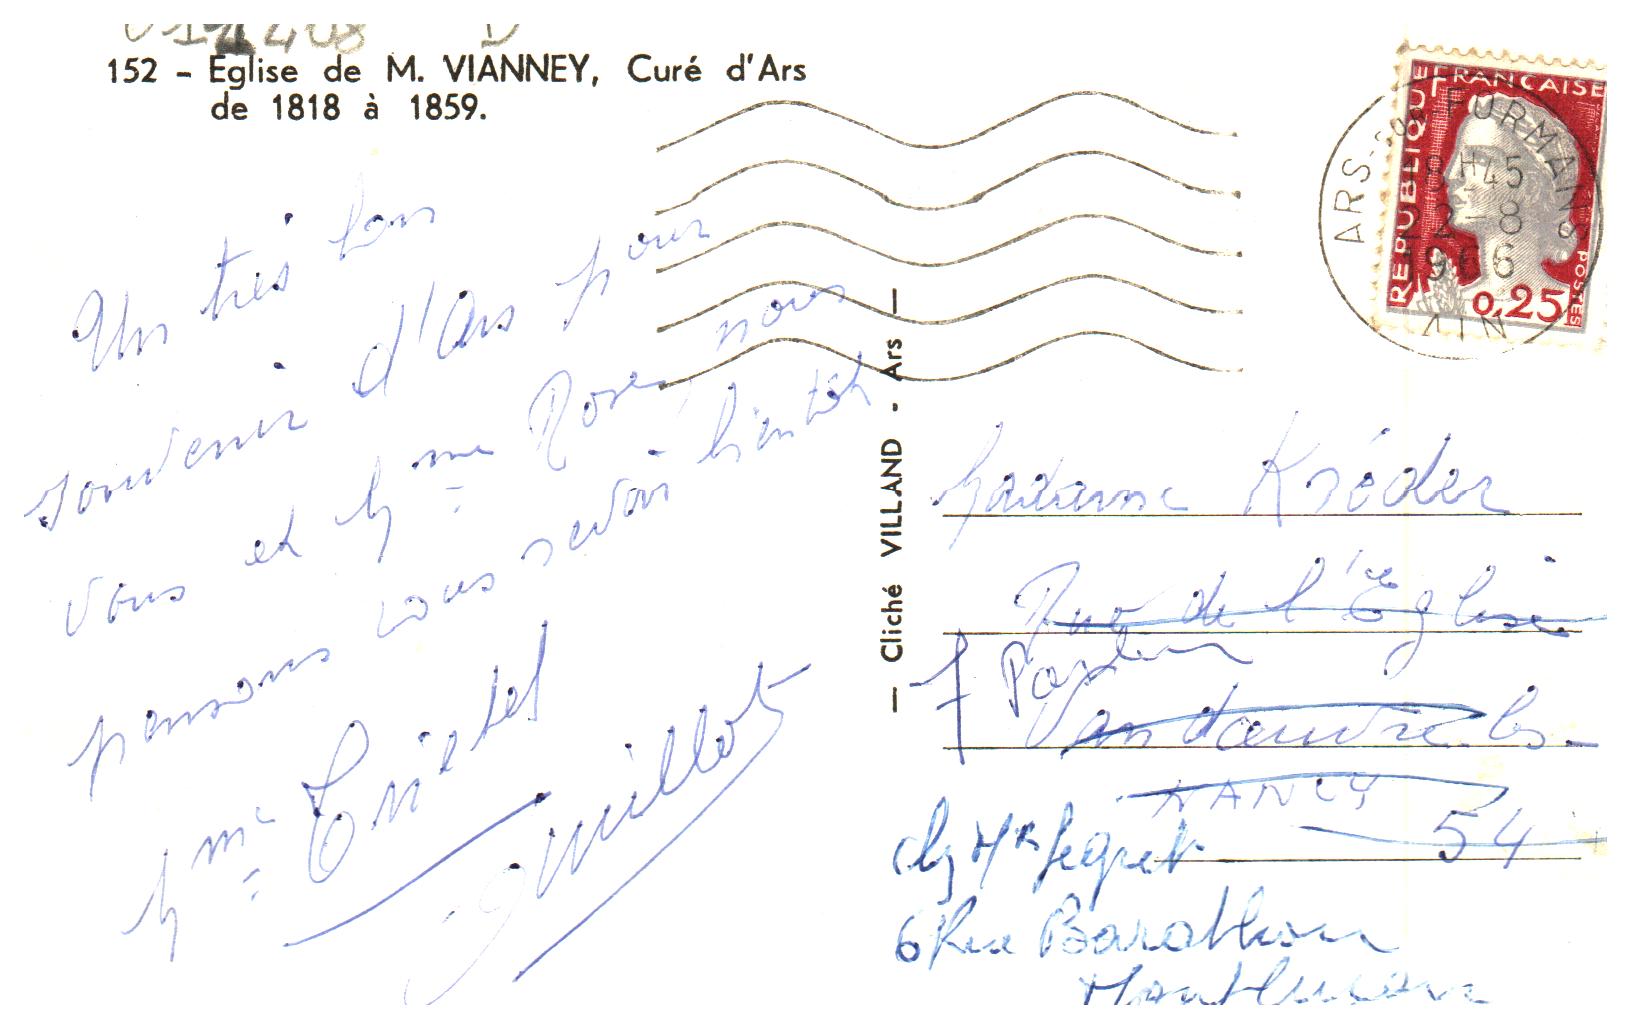 152 - Eglise de M. VIANNEY, Curé d'Ars
de 1818 à 1859.
Un très bon
souvenir d'Ars pour
vous et Mme Rose, nous
pensons vous revoir bientôt
Mme
Guillot
— Cliché VILLAND - Ars —
REPUBLIQUE FRANÇAISE
0,25
POSTES
ARS-sur-FORMANS
18H45
22-8
1966
AIN
Madame Kréder
Rue de l'Eglise
7 Pasteur
Vandœuvre-les-
NANCY
54
Chez Mr Segret
6 Rue Barathon
Montluçon